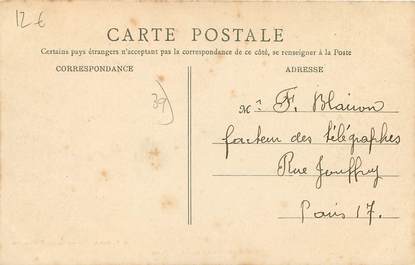 12€
CARTE POSTALE
Certains pays étrangers n'acceptant pas la correspondance de ce côté, se renseigner à la Poste
CORRESPONDANCE
ADRESSE
39)
Mr F. Blairon
facteur des télégraphes
Rue Jouffroy
Paris 17.